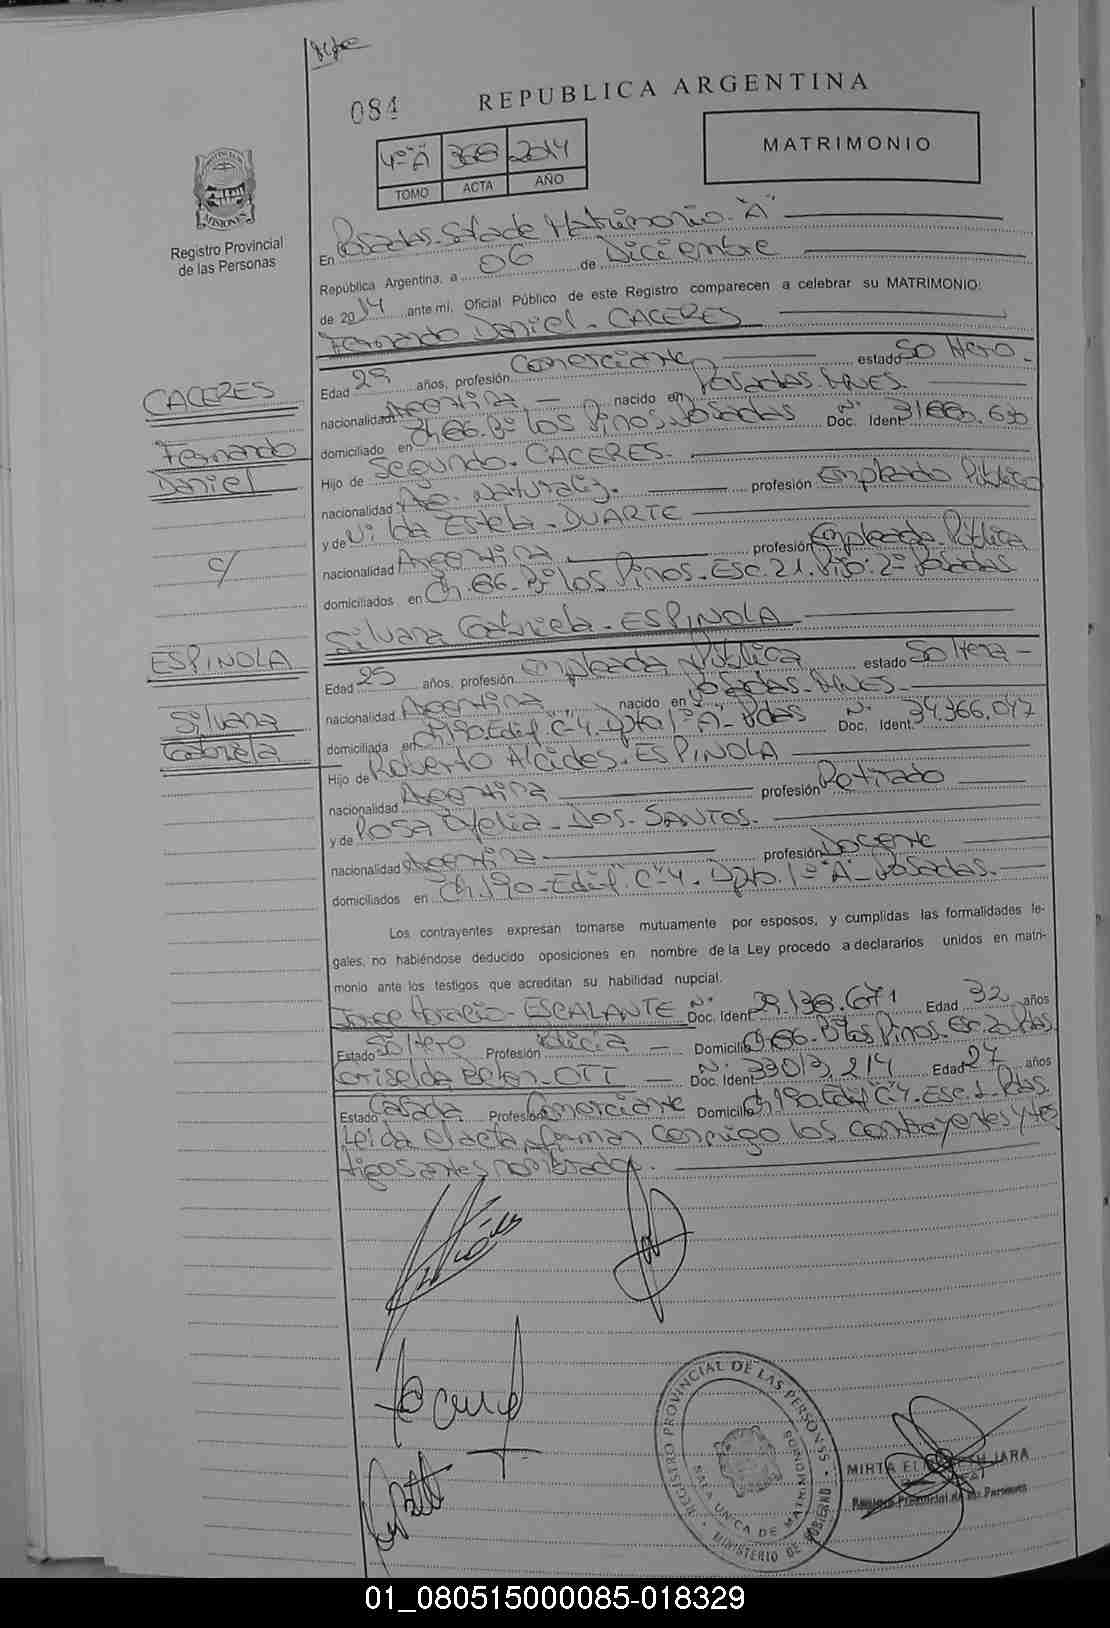 084
REPUBLICA ARGENTINA
MATRIMONIO
4º "A" 368 2014
TOMO ACTA AÑO
MISIONES
Registro Provincial
de las Personas
En Posadas. Sala de Matrimonio. "A"
República Argentina, a 06 de Diciembre
de 2014 ante mí, Oficial Público de este Registro comparecen a celebrar su MATRIMONIO:
Fernando Daniel - CACERES
Edad 29 años, profesión Comerciante estado Soltero -
nacionalidad Argentina, - nacido en Posadas. MNES.
domiciliado en Ch. 66. Bº los Pinos. Posadas Doc. Ident. Nº 31.660.630
Hijo de Segundo. CACERES.
nacionalidad Arg. Naturaliz. profesión Empleado Público
y de Vilda Estela - DUARTE
nacionalidad Argentina profesión Empleada Pública
domiciliados en Ch. 66. Bº los Pinos - Esc. 21. Piso: 2º Posadas
CACERES
Fernando
Daniel
c/
ESPINOLA
Silvana
Gabriela
Silvana Gabriela - ESPINOLA
Edad 25 años, profesión Empleada Pública estado Soltera -
nacionalidad Argentina nacido en Posadas. MNES
domiciliada en Ch. 190. Edif. C-4. Dpto 1º "A" - Pdas Doc. Ident. Nº 34.366.047
Hijo de Roberto Alcides. ESPINOLA
nacionalidad Argentina profesión Retirado
y de Rosa - DOS - SANTOS.
nacionalidad Argentina profesión Docente
domiciliados en Ch. 190 - Edif. C-4. Dpto. 1º "A" - Posadas.
Los contrayentes expresan tomarse mutuamente por esposos, y cumplidas las formalidades le-
gales, no habiéndose deducido oposiciones en nombre de la Ley procedo a declararlos unidos en matri-
monio ante los testigos que acreditan su habilidad nupcial.
Jorge Horacio - ESCALANTE Doc. Ident. Nº 29.138.671 Edad 32 años
Estado Soltero Profesión Policia - Domicilio Ch. 66. Bº los Pinos. Esc. 20. Pdas
Griselda Belen - OTT - Doc. Ident. Nº 33.013.214 Edad 27 años
Estado Casada Profesión Comerciante Domicilio Ch. 190. Edif C-4. Esc. 1. Pdas.
Leida el acta, firman conmigo los contrayentes y tes
tigos antes nombrados.
REGISTRO PROVINCIAL DE LAS PERSONAS
SALA UNICA DE MATRIMONIOS
MINISTERIO DE GOBIERNO
MIRTA JARA
Registro Provincial de las Personas
01_080515000085-018329